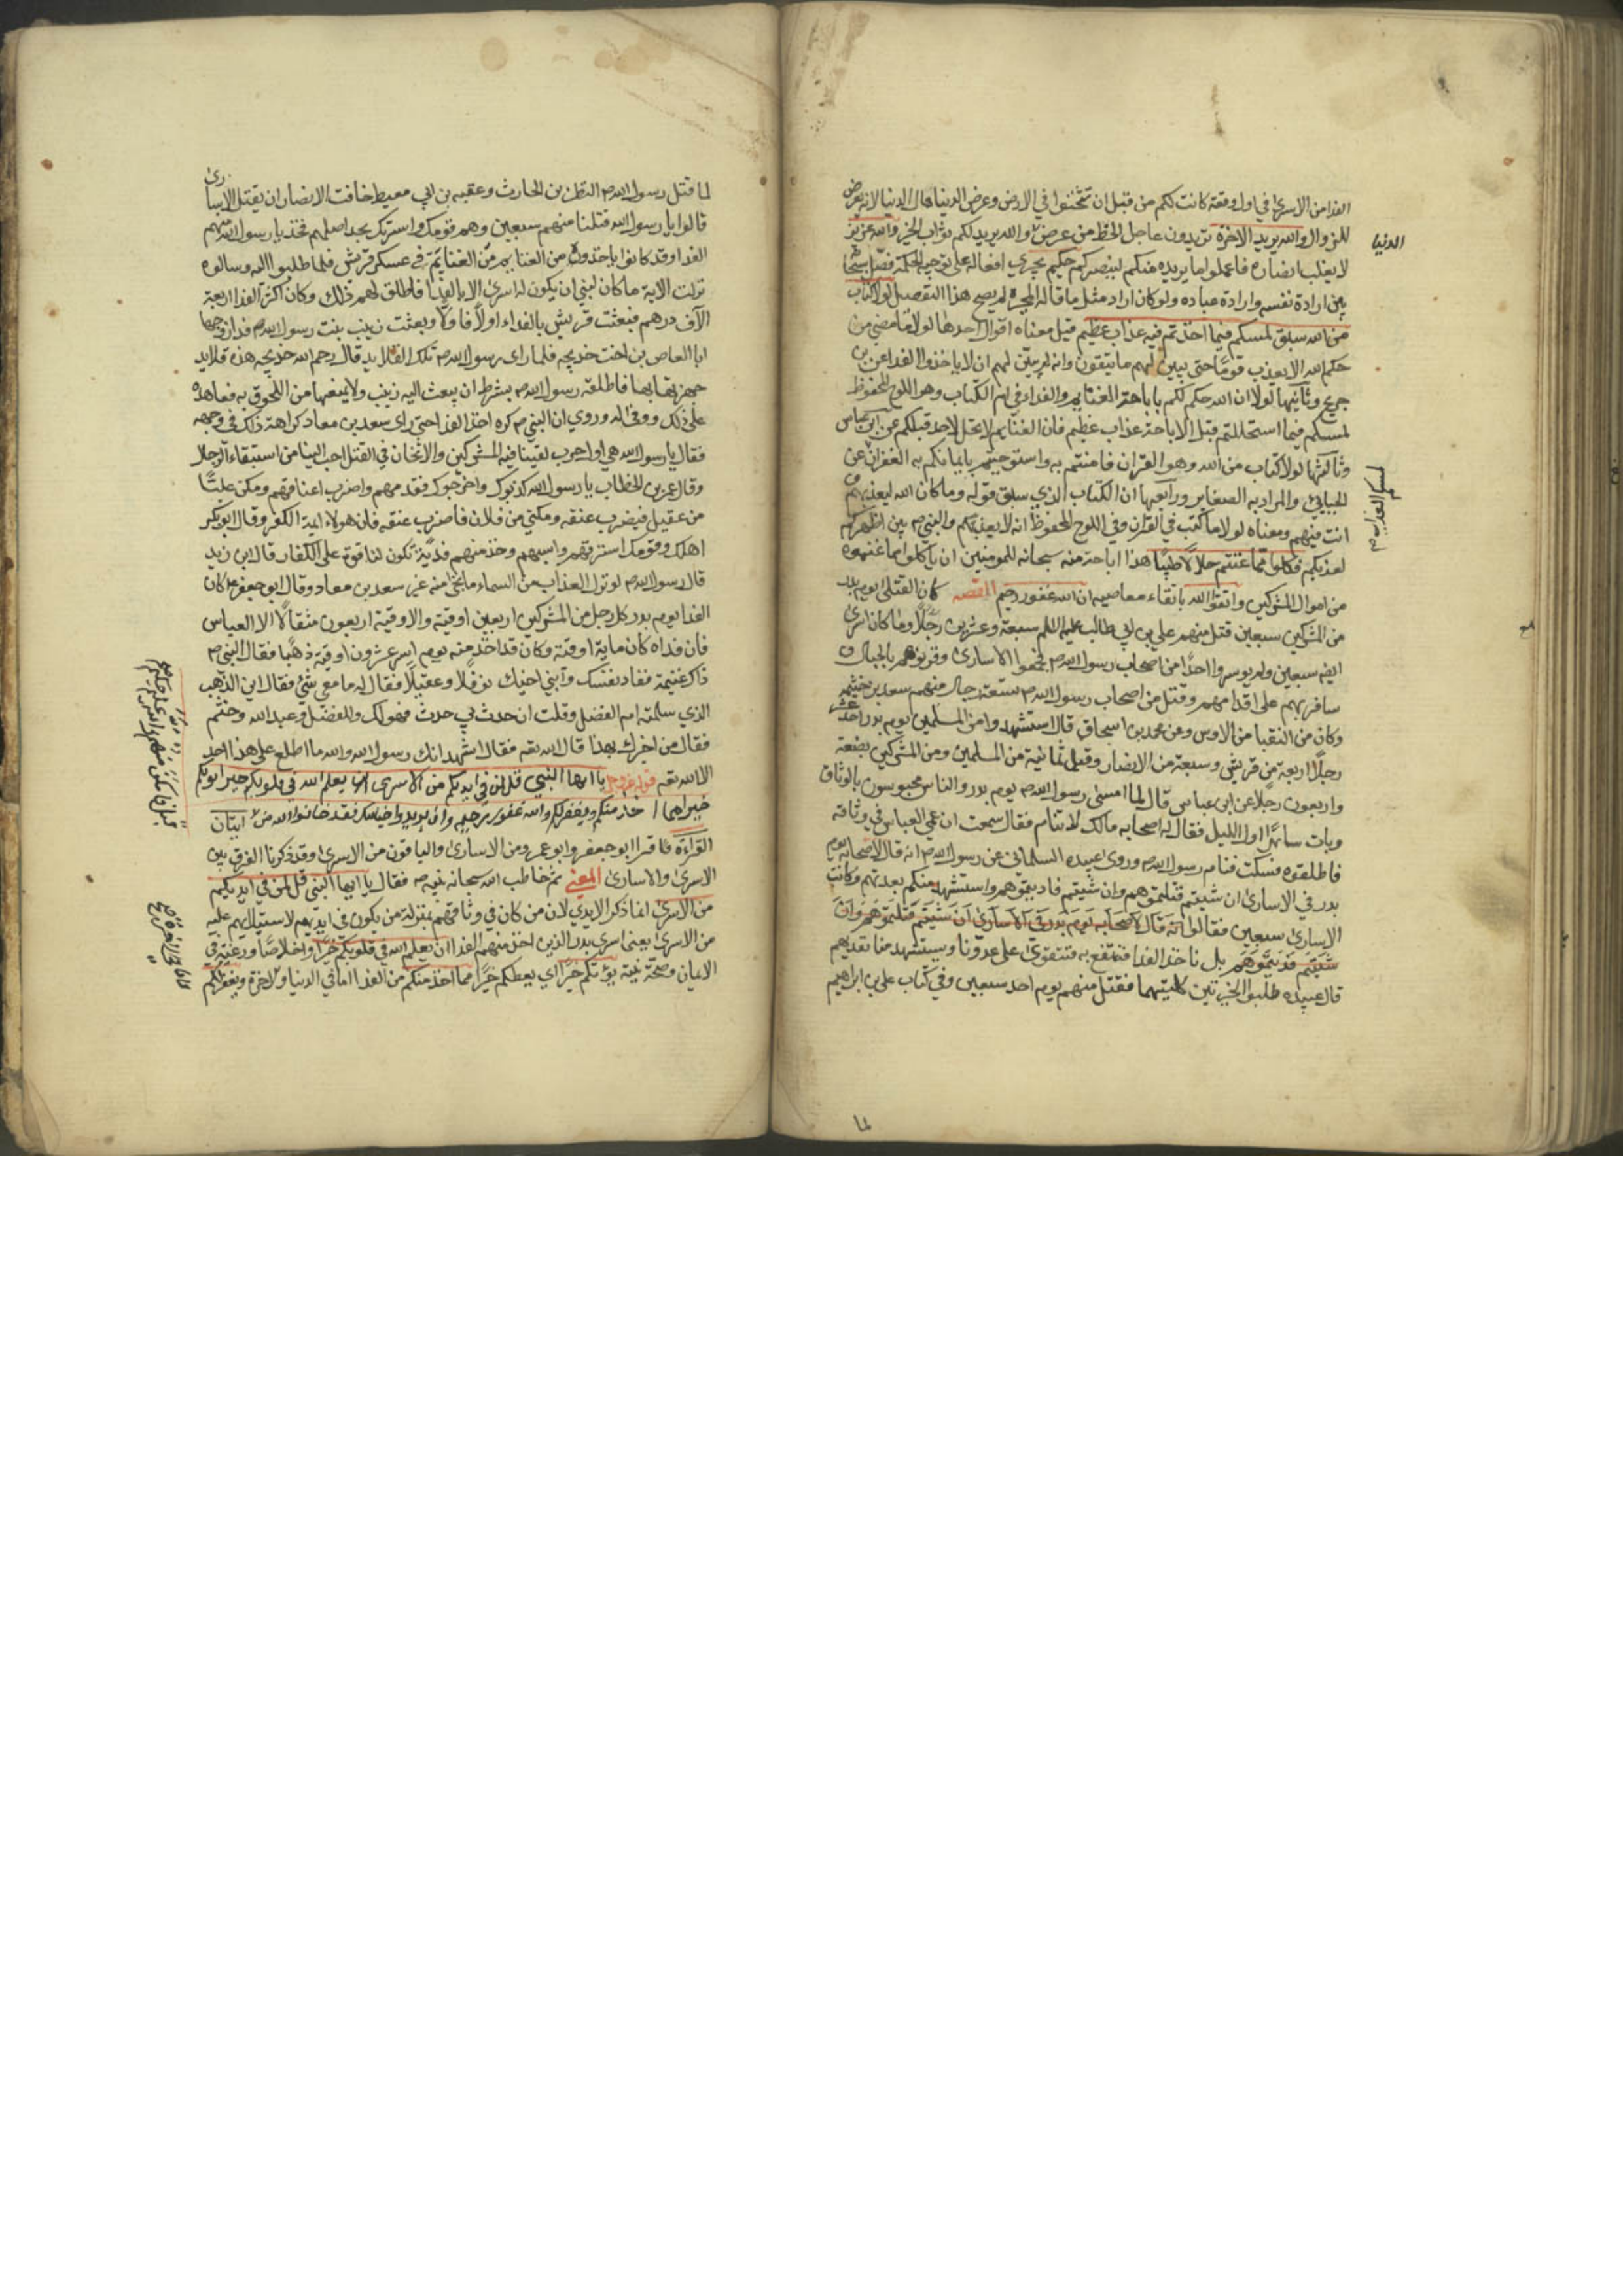 الفدا من الاسرى في اول وقعة كانت لكم من قبل ان تثخنوا في الارض وعرض الدنيا مال الدنيا لانه بعرض
للزوال والله يريد الاخرة تريدون عاجل الحظ من عرض والله يريد لكم ثواب الخير والله عزيز
الدنيا
لا يغلب انصاره فاعملوا ما يريده منكم لينصركم حكيم يجري افعاله على توجبه الحكمة فصل سبحانه
بين ارادة نفسه وارادة عباده ولو كان اراد مثل ما قاله المجبرة لم يصح هذا التفصيل لولا كتاب
من الله سبق لمسكم فيما اخذتم فيه عذاب عظيم قيل معناه اقوال احدها لولا ما مضى من
حكم الله الا يعذب قوما حتى يبين لهم ما يتقون وانه لم يبين لهم ان لا ياخذوا الفدا عن بن
جريج وثانيها لولا ان الله حكم لكم باباحة الغنايم والفداء في ام الكتاب وهو اللوح المحفوظ
لمسكم فيما استحللتم قبل الاباحة عذاب عظيم فان الغنايم لا تحل لاحد قبلكم عن ابن عباس
وثالثها لولا كتاب من الله وهو القران فامنتم به واستوجبتم بايمانكم به الغفران عن
الجبائي والمراد به الصغاير ورابعها ان الكتاب الذي سبق قوله وما كان الله ليعذبهم و
لمسكم العذاب
انت فيهم ومعناه لولا ما كتب في القران وفي اللوح المحفوظ انه لا يعذبكم والنبي م بين اظهركم
لعذبكم فكلوا مما غنمتم حلالا طيبا هذا اباحة منه سبحانه للمومنين ان ياكلوا مما غنموه
من اموال المشركين واتقوا الله باتقاء معاصيه ان الله غفور رحيم القصه كان القتلى يوم بدر
من المشركين سبعين قتل منهم علي بن ابي طالب عليه السلم سبعة وعشرين رجلا وما كان اسرى
ايضا سبعين ولم يوسروا احدا من اصحاب رسول الله م فجمعوا الاسارى وقرنوهم بالحبال و
ساقوهم على اقدامهم وقتل من اصحاب رسول الله م تسعة رجال منهم سعد بن خيثمه
وكان من النقبا من الاوس وعن محمد بن اسحاق قال استشهد من المسلمين يوم بدر احد عشر
رجلا اربعة من قريش وسبعة من الانصار وقيل ثمانية من المسلمين ومن المشركين بضعة
واربعون رجلا عن ابن عباس قال لما امسى رسول الله م يوم بدر والناس محبوسون بالوثاق
وبات ساهرا اول الليل فقال له اصحابه مالك لا تنام فقال سمعت انين عمي العباس في وثاقه
فاطلقوه فسكت فنام رسول الله م وروى عبيده السلماني عن رسول الله م انه قال لاصحابه يوم
بدر في الاسارى ان شيتم قتلتموهم وان شيتم فاديتموهم واستشهد منكم بعدتهم وكانت
الاسارى سبعين فقالوا انه قال لاصحابه يوم بدر في الاسارى ان شيتم قتلتموهم وان
شيتم فديتموهم بل ناخذ الفدا فنتمتع به ونتقوى على عدونا وسيستشهد منا بعدتهم
قال عبيده طلبوا الخيرتين كلتيهما فقتل منهم يوم احد سبعين وفي كتاب علي بن ابراهيم
لما
لما قتل رسول الله م النضر بن الحارث وعقبه بن ابي معيط خافت الانصار ان يقتل الاسارى
قالوا يا رسول الله قتلنا منهم سبعين وهم قومك واسرتك تجد اصلهم فخذ يا رسول الله منهم
الفدا وقد كانوا ياخذون من الغنايم من الغنايم في عسكر قريش فلما طلبوا اليه وسالوه
نزلت الاية ما كان لنبي ان يكون له اسرى الايات فاطلق لهم ذلك وكان اكثر الفدا اربعة
الآف درهم فبعثت قريش بالفداء اولا فاولا وبعثت زينب بنت رسول الله م فدا زوجها
ابا العاص بن اخت خديجه فلما راى رسول الله م تلك القلايد قال رحم الله خديجه هذه قلايد
جهزتها بها فاطلقه رسول الله م بشرط ان يبعث اليه زينب ولا يمنعها من اللحوق به فعاهده
على ذلك ووفى له وروي ان النبي م كره اخذ الفدا حتى راى سعد بن معاد كراهة ذلك في وجهه
فقال يا رسول الله هي اول حرب لقينا فيه المشركين والاثخان في القتل احب الينا من استبقاء الرجال
وقال عمر بن الخطاب يا رسول الله كذبوك واخرجوك فقدمهم واضرب اعناقهم ومكن عليا
من عقيل فيضرب عنقه ومكني من فلان فاضرب عنقه فان هولاء ايمة الكفر وقال ابو بكر
اهلك وقومك استرقهم واسبهم وخذ منهم فدية تكون لنا قوة على الكفار قال ابن زيد
قال رسول الله م لو نزل العذاب من السماء ما نجا منه غير سعد بن معاد وقال ابو جعفر م كان
الفدا يوم بدر كل رجل من المشركين اربعين اوقية والاوقية اربعون مثقالا الا العباس
فان فداه كان ماية اوقية وكان قد اخذ منه يوم اسر عشرون اوقية ذهبا فقال النبي م
ذاك غنيمة ففاد نفسك وابني اخيك نوفلا وعقيلا فقال له ما معي شئ فقال اين الذهب
الذي سلمته ام الفضل وقلت ان حدث بي حدث فهو لك وللفضل وعبد الله وخثم
فقال من اخبرك بهذا قال الله تعه فقال اشهد انك رسول الله والله ما اطلع على هذا احد
الا الله تعه قوله عز وجل يا ايها النبي قل لمن في ايديكم من الاسرى ان يعلم الله في قلوبكم خيرا يوتكم
خيرا مما اخذ منكم ويغفر لكم والله غفور رحيم وان يريدوا خيانتك فقد خانوا الله من ايتان
قبل فامكن منهم والله عليم حكيم
القراءة قرا ابو جعفر وابو عمرو من الاسارى والباقون من الاسرى وقد ذكرنا الفرق بين
الاسرى والاسارى المعنى ثم خاطب الله سبحانه نبيه ص فقال يا ايها النبي قل لمن في ايديكم
من الاسرى انما ذكر الايدي لان من كان في وثاقهم بمنزلة من يكون في ايديهم لاستيلائهم عليه
من الاسرى يعني اسرى بدر الذين اخذ منهم الفدا ان يعلم الله في قلوبكم خيرا واخلاصا ورغبة في
الايمان وصحة نية يوتكم خيرا اي يعطكم خيرا مما اخذ منكم من الفدا اما في الدنيا والاخرة ويغفر لكم